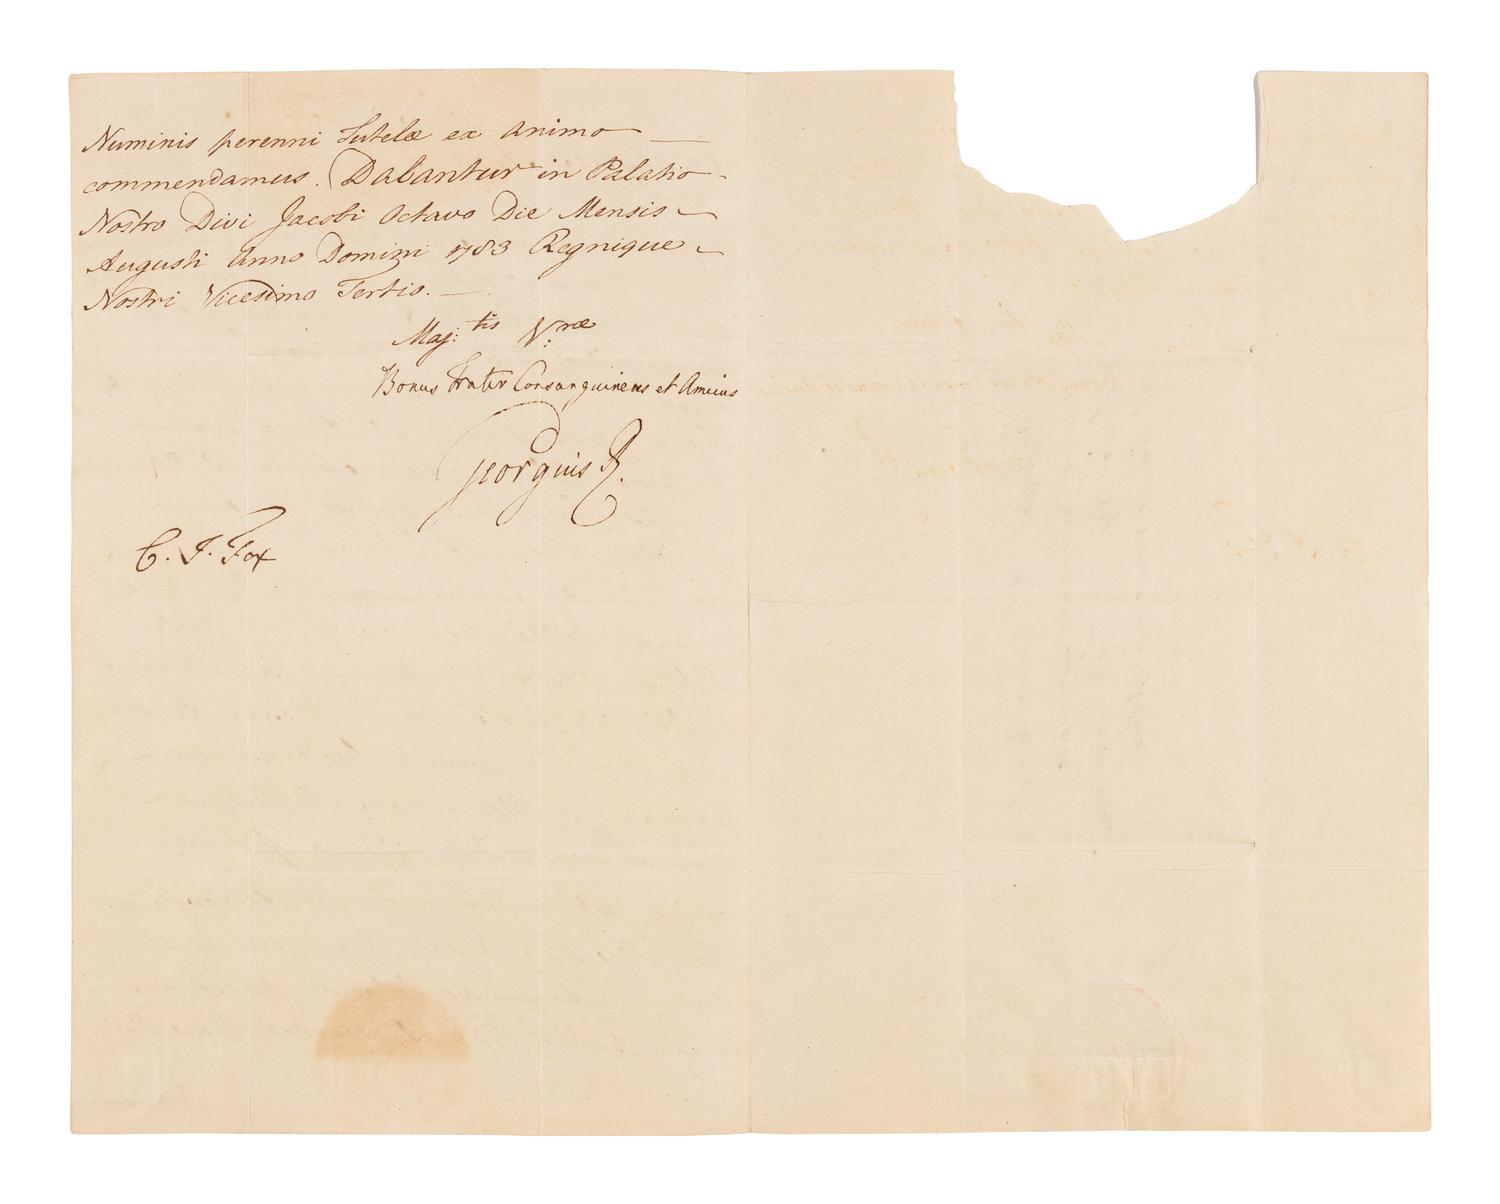 Numinis perenni Tutelæ ex animo —
commendamus. Dabantur in Palatio -
Nostro Divi Jacobi Octavo Die Mensis -
Augusti Anno Domini 1783 Regnique -
Nostri Vicesimo Tertio. —
Maj:tis V:ræ
Bonus Frater Consanguineus et Amicus
Georgius R.
C. J. Fox